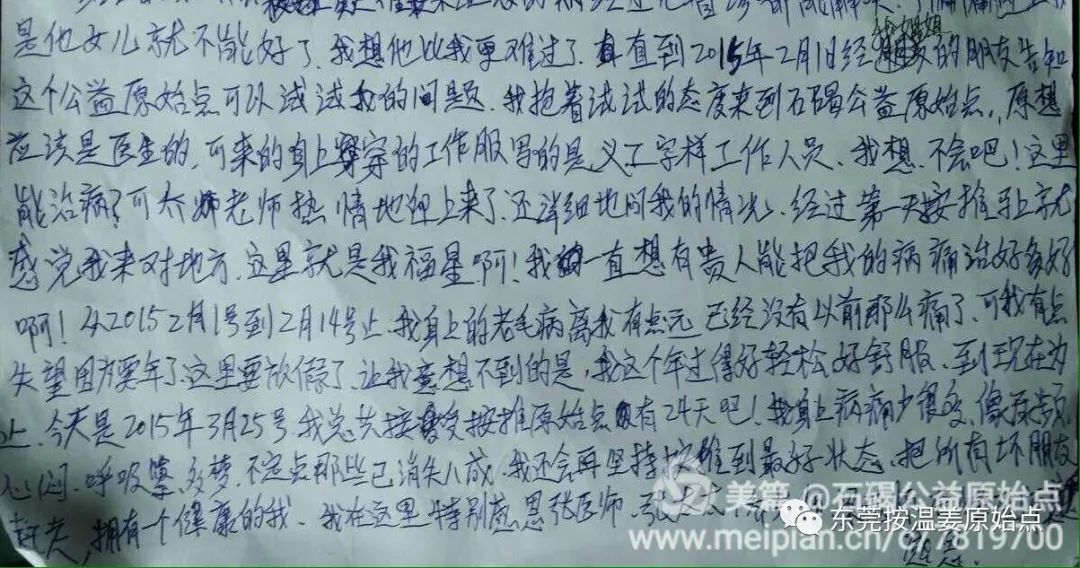 是他女儿就不能好了、我想他比我更难过了、直到2015年2月1日经 的朋友告知
这个公益原始点可以试试我的问题、我抱着试试的态度来到石碣公益原始点,原想
应该是医生的、可来的身上穿的工作服写的是义工字样工作人员、我想、不会吧!这里
能治病?可 老师热情地迎上来了、还详细地问我的情况、经过第一天按推马上就
感觉我来对地方、这里就是我福星啊!我一直想有贵人能把我的病痛治好多好
啊!从2015 2月1号到2月14号止、我身上的老毛病离我有点远 已经没有以前那么痛了、可我有点
失望因为要年了、这里要放假了、让我意想不到的是,我这个年过得好轻松好舒服、到现在为
止、今天是2015年3月25号、我总共接受按推原始点有24天吧!我身上病痛少很多、像
心闷、呼吸 、多梦、不定点那些已消失八成、我还会再坚持按推到最好状态、把所有坏朋友
赶走,拥有一个健康的我、我在这里特别感恩张医师、张
感恩.
美篇 @石碣公益原始点
东莞按温姜原始点
www.meipian.cn/c/7819700